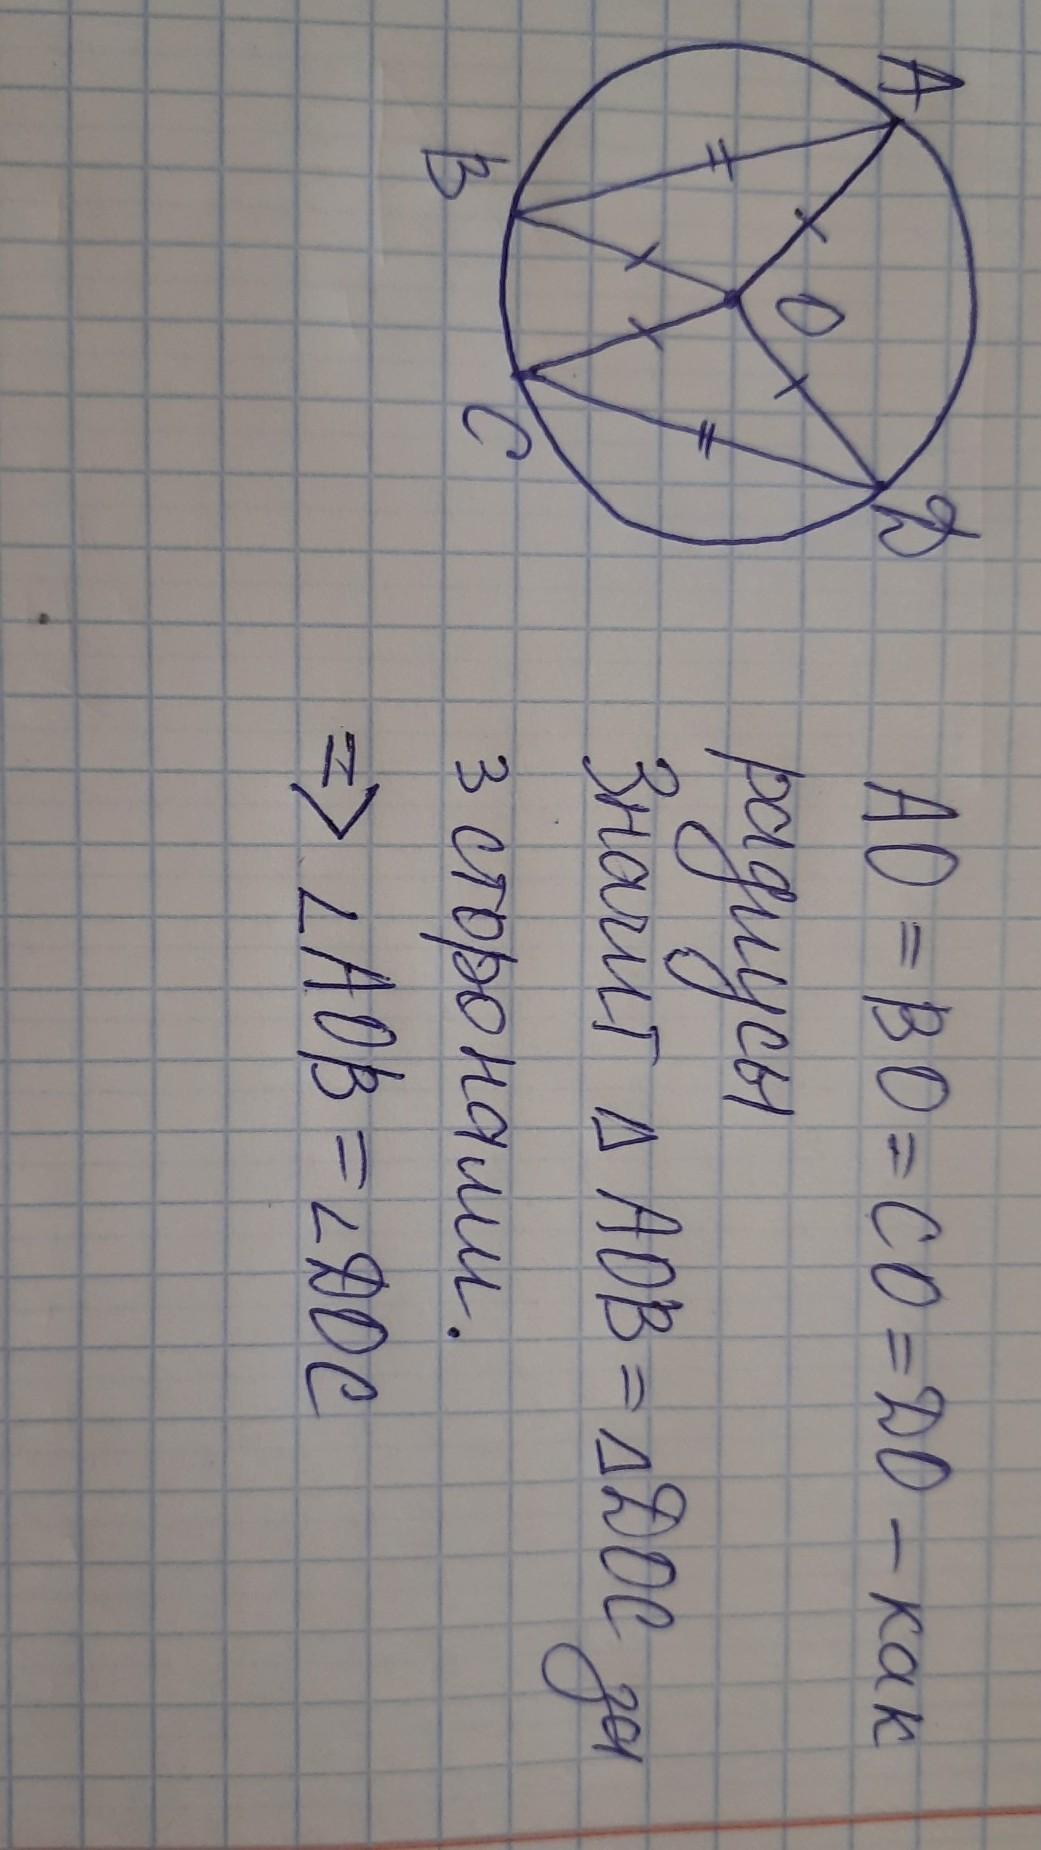 A
B
C
D
O
AO = BO = CO = DO - как
радиусы
Значит Δ AOB = Δ DOC
3 сторонами.
=> ∠AOB = ∠DOC